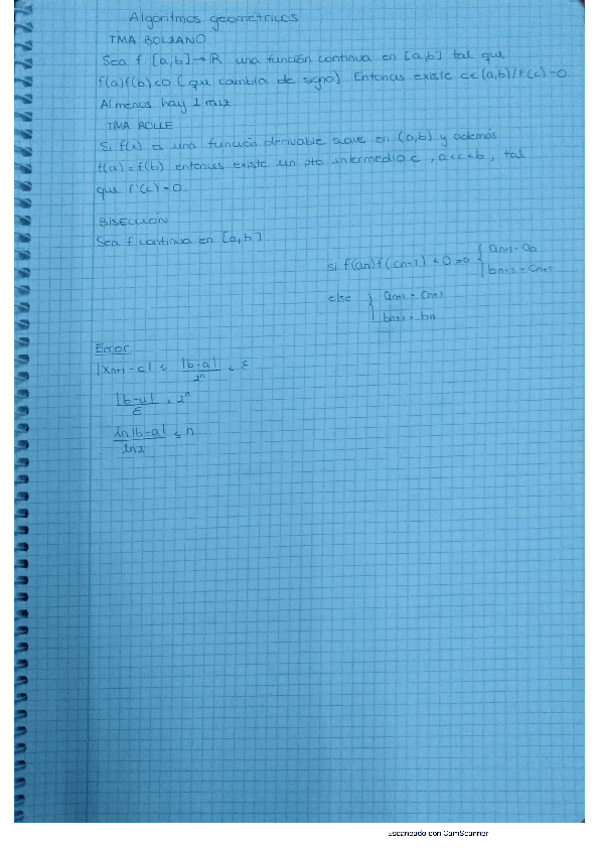 Algoritmos geométricos
TMA BOLZANO
Sea f: [a,b] → R una función continua en [a,b] tal que
f(a)f(b)<0 (que cambia de signo). Entonces existe c∈(a,b)/f(c)=0
Al menos hay 1 raíz.
TMA ROLLE
Si f(x) es una función derivable suave en (a,b) y además
f(a) = f(b) entonces existe un pto intermedio c, a<c<b, tal
que f'(c)=0.
BISECCIÓN
Sea f continua en [a,b]
si f(an)f(cn+1) < 0 => { an+1 = an
bn+1 = cn+1
else { an+1 = cn+1
bn+1 = bn
Error
|xn+1 - c| ≤ |b-a| / 2^n < ε
|b-a| / ε < 2^n
ln|b-a| / ln2 ≤ n
Escaneado con CamScanner